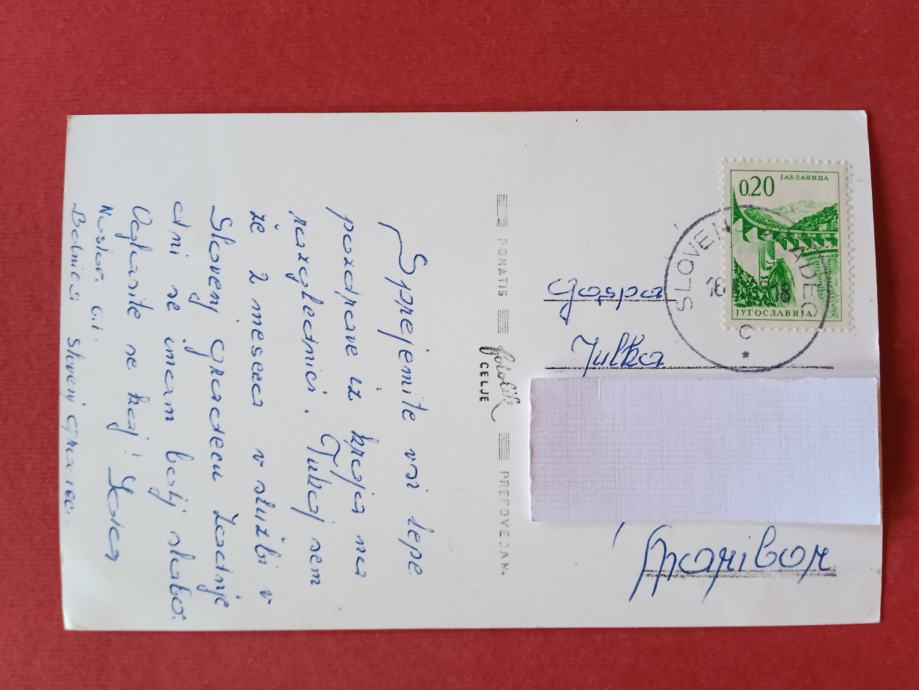 Sprejmite vsi lepe
pozdrave iz kraja na
razglednici. Tukaj sem
že 2 meseca v službi v
Slovenj Gradecu Zadnje
dni se imam bolj slabo.
Oglasite se kaj!
Naslov. C.i.
Bolnica Slovenj Gradec.
PONATIS fotolik CELJE PREPOVEDAN.
0.20
ЈАБЛАНИЦА
ЈУГОСЛАВИЈА
SLOVENJ GRADEC
18
C
Gospa
Julka
Maribor